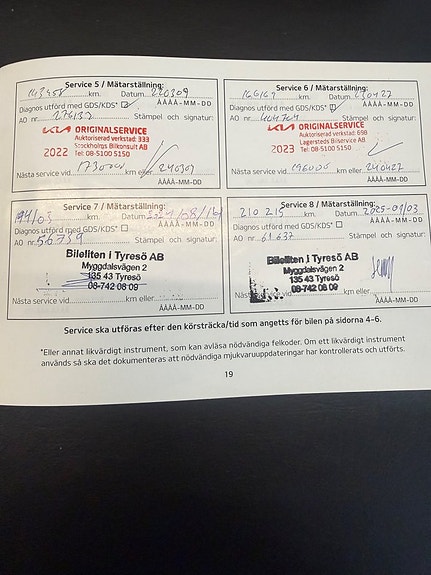 Service 5 / Mätarställning:
km. Datum 220309
Diagnos utförd med GDS/KDS* ÅÅÅÅ-MM-DD
AO nr. 276132 Stämpel och signatur:
KIA ORIGINALSERVICE
Auktoriserad verkstad: 333
Stockholms Bilkonsult AB
2022 Tel: 08-5100 5150
Nästa service vid km eller 240309
ÅÅÅÅ-MM-DD
Service 6 / Mätarställning:
166169 km. Datum 230427
Diagnos utförd med GDS/KDS* ÅÅÅÅ-MM-DD
AO nr. Stämpel och signatur:
KIA ORIGINALSERVICE
Auktoriserad verkstad: 698
Lagerstedts Bilservice AB
2023 Tel: 08-5100 5150
Nästa service vid 196000 km eller 240427
ÅÅÅÅ-MM-DD
Service 7 / Mätarställning:
km. Datum
Diagnos utförd med GDS/KDS* ÅÅÅÅ-MM-DD
AO nr. 56739 Stämpel och signatur:
Bileliten i Tyresö AB
Myggdalsvägen 2
135 43 Tyresö
08-742 08 09
Nästa service vid km eller
ÅÅÅÅ-MM-DD
Service 8 / Mätarställning:
210 215 km. Datum 2025-09/03
Diagnos utförd med GDS/KDS* ÅÅÅÅ-MM-DD
AO nr. 61637 Stämpel och signatur:
Bileliten i Tyresö AB
Myggdalsvägen 2
135 43 Tyresö
08-742 08 09
Nästa service vid km eller
ÅÅÅÅ-MM-DD
Service ska utföras efter den körsträcka/tid som angetts för bilen på sidorna 4–6.
*Eller annat likvärdigt instrument, som kan avläsa nödvändiga felkoder. Om ett likvärdigt instrument
används så ska det dokumenteras att nödvändiga mjukvaruuppdateringar har kontrollerats och utförts.
19